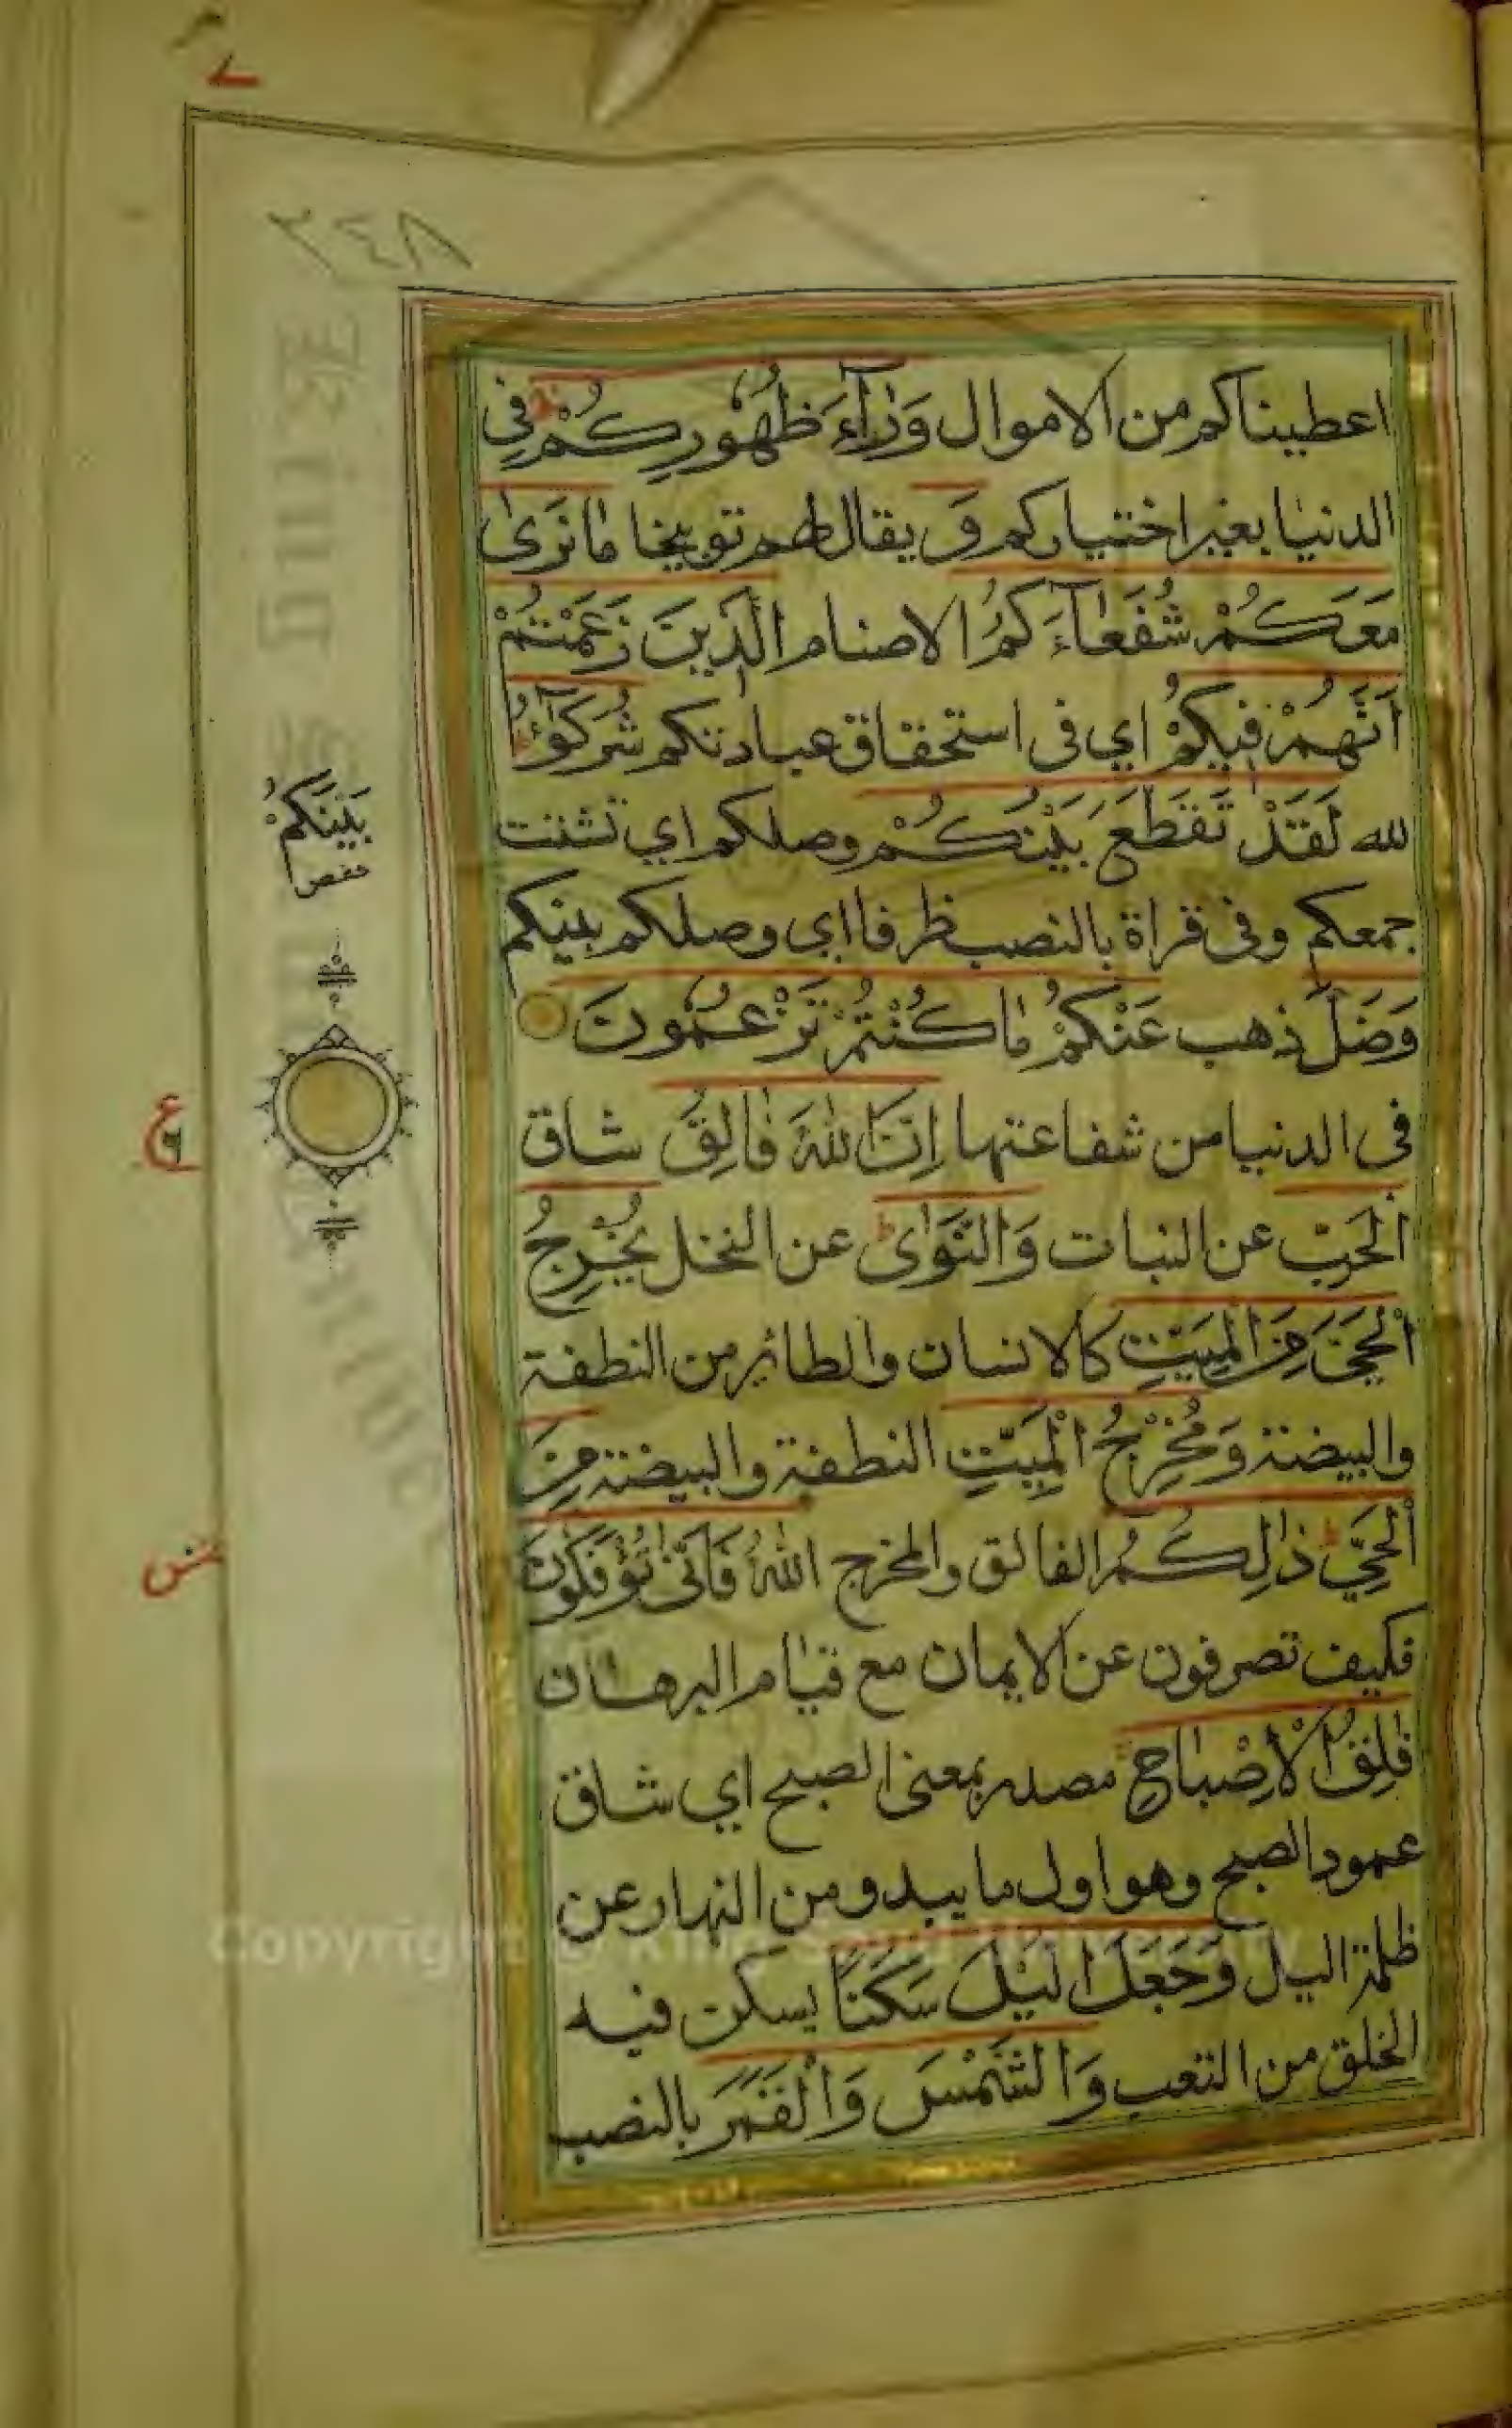 ٢٤٨
اعطيناكم من الاموال وَرٰٓاءَ ظُهُورِكُمْ فى
الدنيا بغير اختياركم وَ يقال لهم توبيخا مٰا نَرىٰ
مَعَكُمْ شُفَعٰٓاءَكُمُ الاصنام الَّذِينَ زَعَمْتُمْ
اَنَّهُمْ فِيكُمْ اي فى استحقاق عبادتكم شُرَكٰٓؤُا
لله لَقَدْ تَقَطَّعَ بَيْنُكُمْ وصلكم اي تشتت
جمعكم وفى قراة بالنصب ظرفا اي وصلكم بينكم
وَضَلَّ ذهب عَنْكُمْ مٰا كُنْتُمْ تَزْعُمُونَ
فى الدنيا من شفاعتها اِنَّ اللّٰهَ فٰالِقُ شاق
الْحَبِّ عن النبات وَالنَّوٰى عن النخل يُخْرِجُ
الْحَيَّ مِنَ الْمَيِّتِ كالانسان والطائر من النطفة
والبيضة وَمُخْرِجُ الْمَيِّتِ النطفة والبيضة مِنَ
الْحَيِّ ذٰلِكُمُ الفالق والمخرج اللّٰهُ فَاَنّٰى تُؤْفَكُونَ
فكيف تصرفون عن الايمان مع قيام البرهان
فٰلِقُ الْاِصْبٰاحِ مصدر بمعنى الصبح اي شاق
عمود الصبح وهو اول ما يبدو من النهار عن
ظلمة اليل وَجَعَلَ الَّيْلَ سَكَنًا يسكن فيه
الخلق من التعب وَالشَّمْسَ وَالْقَمَرَ بالنصب
بَيْنَكُمْ
حفص
ع
Copyright © King Saud University